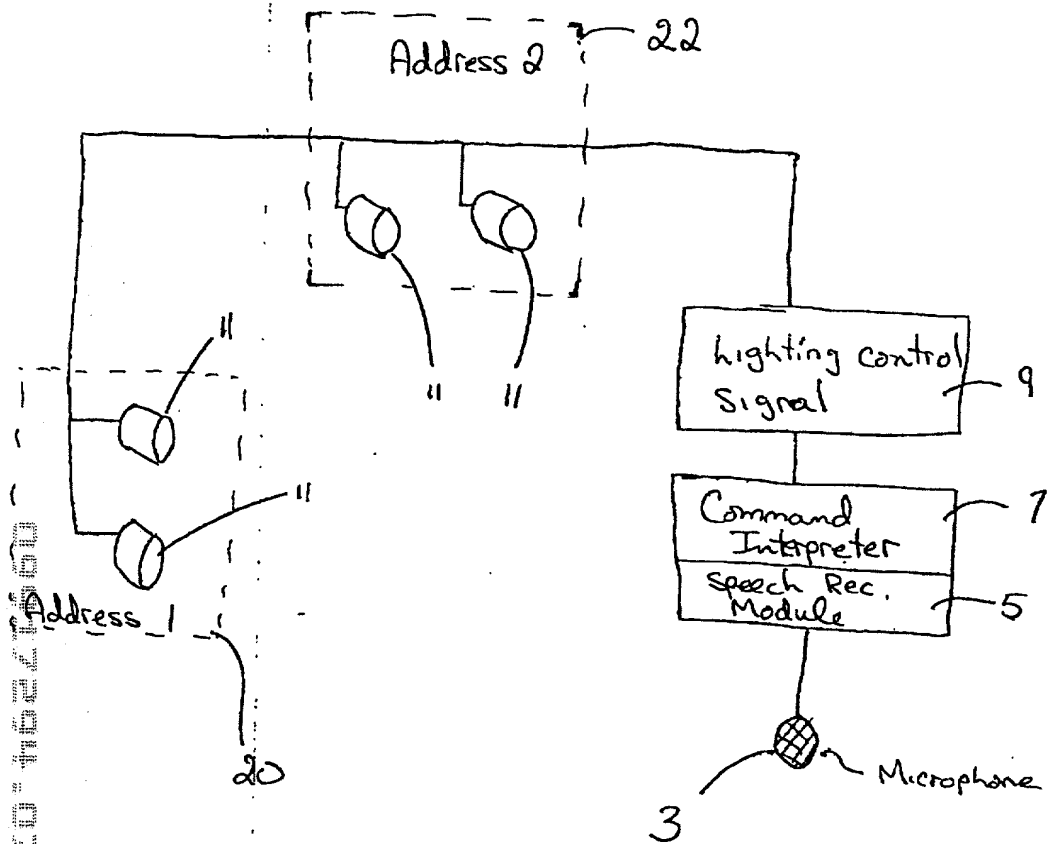 Address 2
22
11
11
11
11
Address 1
20
Lighting control
Signal
9
Command
Interpreter
7
Speech Rec.
Module
5
Microphone
3